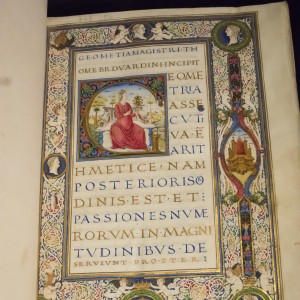 GEOMETIA MAGISTRI TH
OME BRDVARDINI INCIPIT
GEOME
TRIA
ASSE
CVT
VA Ē
ARIT
HMETICE·NAM
POSTERIORIS O
DINIS·EST·ET·
PASSIONES NVME
RORVM·IN·MAGNI
TVDINIBVS·DE
SERVIVNT·PROPTER·